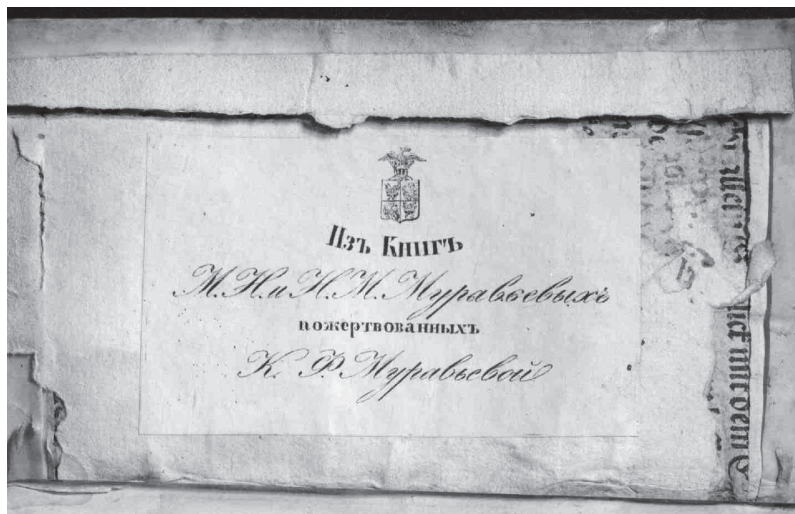 Изъ Книгъ
М. Н. и Н. М. Муравьевыхъ
пожертвованныхъ
К. Ф. Муравьевой